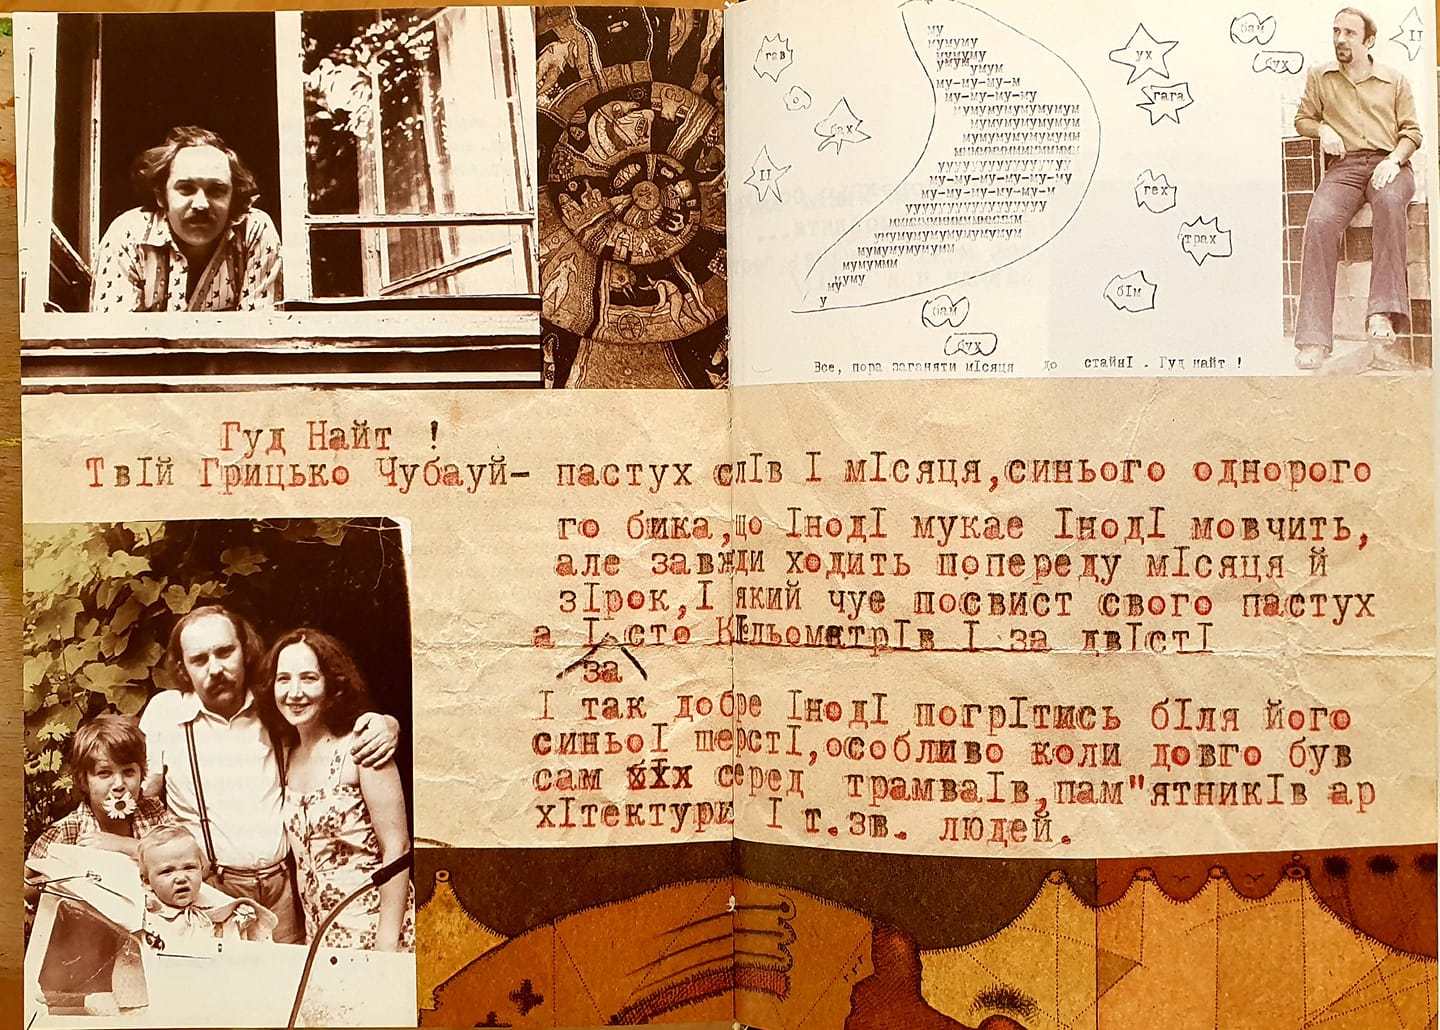 гав
бах
ІІ
му
мумуму
мумуму
умум
му-му-му-м
му-му-му-му
му-му-му-му-му
му-му-му-му-м
мумумумумумм
мумуммм
му
уму
у
ух
гага
гех
трах
бІм
бам
бух
бай
бух
ІІ
Все, пора заганяти мІсяця до стайнІ . Гуд найт !
Гуд Найт !
ТвІй Грицько Чубауй- пастух слІв І мІсяця,синього однорого
го бика,що ІнодІ мукає ІнодІ мовчить,
але завжди ходить попереду мІсяця й
зІрок,І який чує посвист свого пастух
а І сто КІльометрІв І за двІстІ
за
І так добре ІнодІ погрІтись бІля його
синьоІ шерстІ,особливо коли довго був
сам ххх серед трамваІв,пам"ятникІв ар
хІтектури І т.зв. людей.